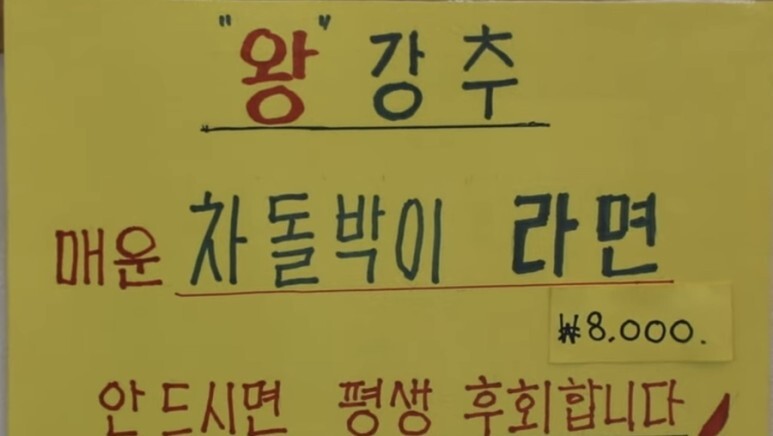 "왕" 강추
매운 차돌박이 라면
₩8,000.
안 드시면 평생 후회합니다